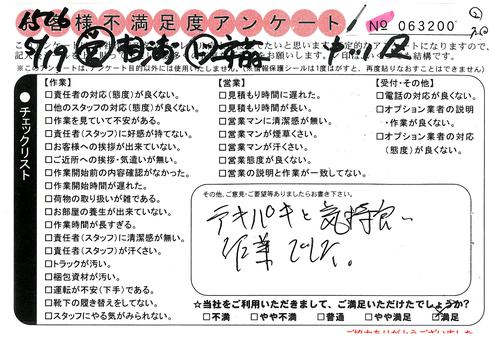 お客様不満足度アンケート
№ 063200
※このアンケートは、アンケート目的以外には使用いたしません。
チェックリスト
【作業】
□責任者の対応(態度)が良くない。
□他のスタッフの対応(態度)が良くない。
□作業を見ていて不安がある。
□責任者(スタッフ)に好感が持てない。
□お客様への挨拶が出来ていない。
□ご近所への挨拶・気遣いが無い。
□作業開始前の内容確認がなかった。
□作業開始時間が遅れた。
□荷物の取り扱いが雑である。
□お部屋の養生が出来ていない。
□作業時間が長すぎる。
□責任者(スタッフ)に清潔感が無い。
□責任者(スタッフ)が汗くさい。
□トラックが汚い。
□梱包資材が汚い。
□運転が不安(下手)である。
□靴下の履き替えをしてない。
□スタッフにやる気がみられない。
【営業】
□見積もり時間に遅れた。
□見積もり時間が長い。
□営業マンに清潔感が無い。
□営業マンが煙草くさい。
□営業マンが汗くさい。
□営業態度が良くない。
□営業の説明と作業が一致してない。
【受付・その他】
□電話の対応が良くない。
□オプション業者の説明
・作業が良くない。
□オプション業者の対応
(態度)が良くない。
その他、ご意見・ご要望等ありましたらお書き下さい。
テキパキと気持良い
作業でした。
☆当社をご利用いただきまして、ご満足いただけたでしょうか?
□不満 □やや不満 □普通 □やや満足 □満足
ご協力ありがとうございました